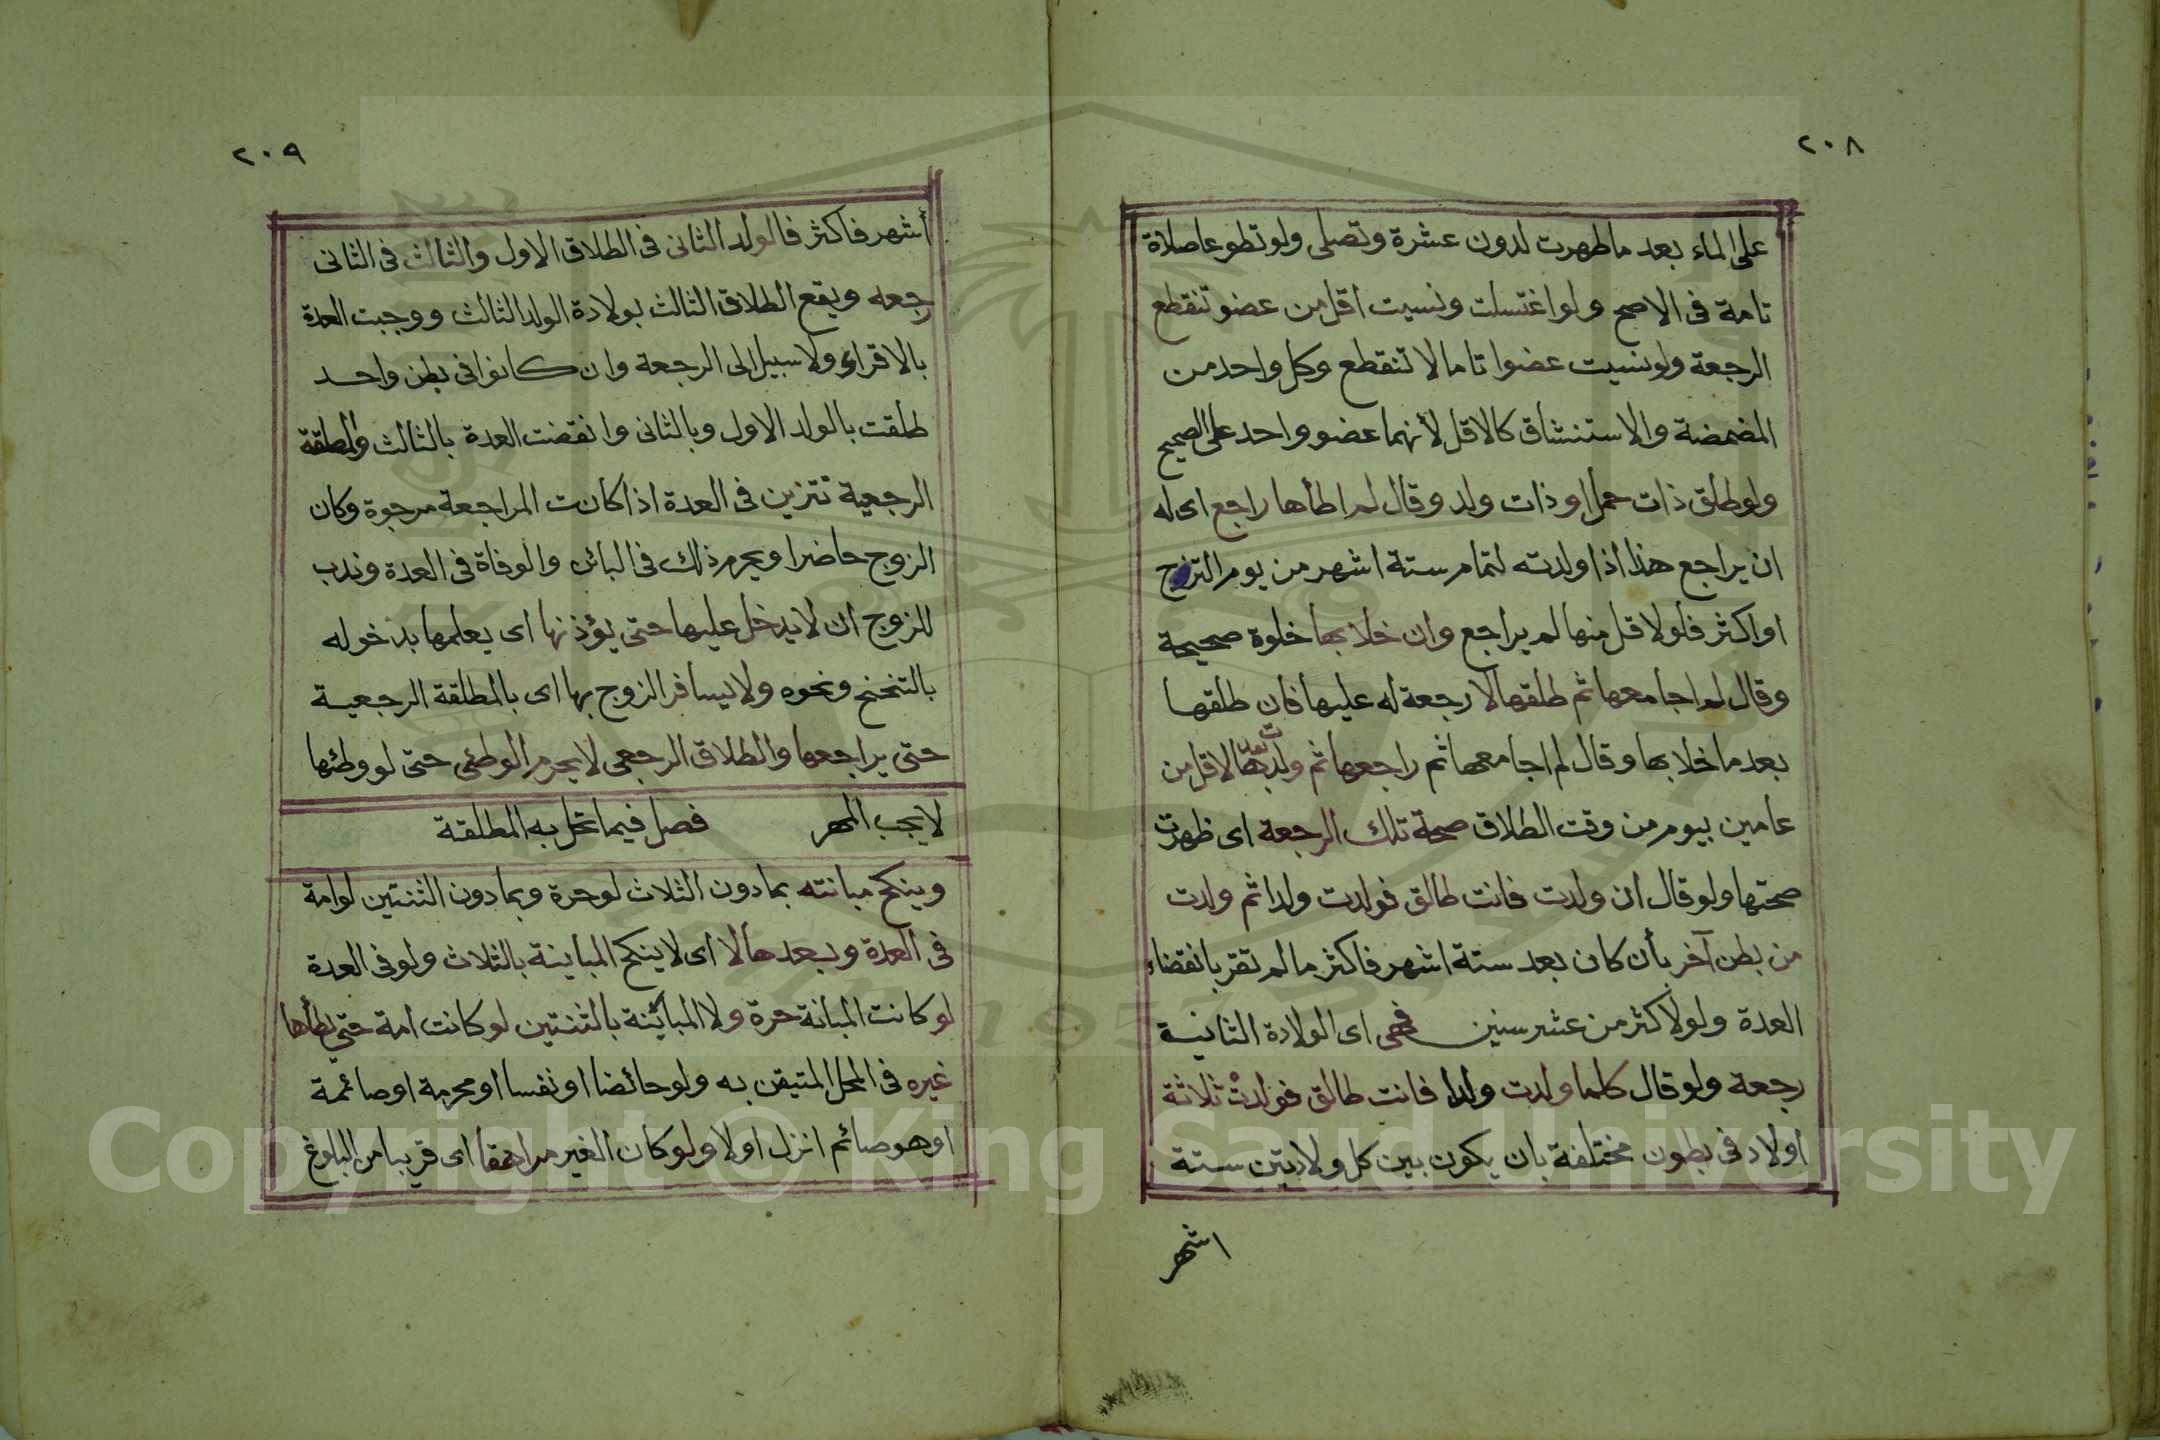 ٢٠٨
على الماء بعد ما طهرت لدون عشرة وتصلى ولو تطوعا صلاة
تامة فى الاصح ولو اغتسلت ونسيت اقل من عضو تنقطع
الرجعة ولو نسيت عضوا تاما لا تنقطع وكل واحد من
المضمضة والاستنشاق كالاقل لأنهما عضو واحد على الصحيح
ولو طلق ذات حمل او ذات ولد وقال لم اطأها راجع اى له
ان يراجع هذا اذا ولدته لتمام ستة اشهر من يوم التزوج
او اكثر فلو لاقل منها لم يراجع وان خلا بها خلوة صحيحة
وقال لم اجامعها ثم طلقها لا رجعة له عليها فان طلقها
بعد ما خلا بها وقال لم اجامعها ثم راجعها ثم ولدت بعدها لاقل من
عامين بيوم من وقت الطلاق صحة تلك الرجعة اى ظهرت
صحتها ولو قال ان ولدت فانت طالق فولدت ولدا ثم ولدت
من بطن آخر بأن كان بعد ستة اشهر فاكثر ما لم تقر بانقضاء
العدة ولو لاكثر من عشر سنين فهى اى الولادة الثانية
رجعة ولو قال كلما ولدت ولدا فانت طالق فولدت ثلاثة
اولاد فى بطون مختلفة بان يكون بين كل ولادتين ستة
اشهر
٢٠٩
أشهر فاكثر فالولد الثانى فى الطلاق الاول والثالث فى الثانى
رجعه ويقع الطلاق الثالث بولادة الولد الثالث ووجبت العدة
بالاقراء ولا سبيل الى الرجعة وان كانوا فى بطن واحد
طلقت بالولد الاول وبالثانى وانقضت العدة بالثالث والمطلقة
الرجعية تتزين فى العدة اذا كانت المراجعة مرجوة وكان
الزوج حاضرا ويحرم ذلك فى البائن والوفاة فى العدة وندب
للزوج ان لا يدخل عليها حتى يؤذنها اى يعلمها بدخوله
بالتنحنح ونحوه ولا يسافر الزوج بها اى بالمطلقة الرجعية
حتى يراجعها والطلاق الرجعى لا يحرم الوطئ حتى لو وطئها
لا يجب المهر فصل فيما تحل به المطلقة
وينكح مبانته بما دون الثلاث لو حرة وبما دون الثنتين لو امة
فى العدة وبعدها لا اى لا ينكح المباينة بالثلاث ولو فى العدة
لو كانت المبانة حرة ولا المبائنة بالثنتين لو كانت امة حتى يطأها
غيره فى المحل المتيقن به ولو حائضا او نفسا او محرمة او صائمة
او هو صائم انزل اولا ولو كان الغير مراهقا اى قريبا من البلوغ
Copyright © King Saud University